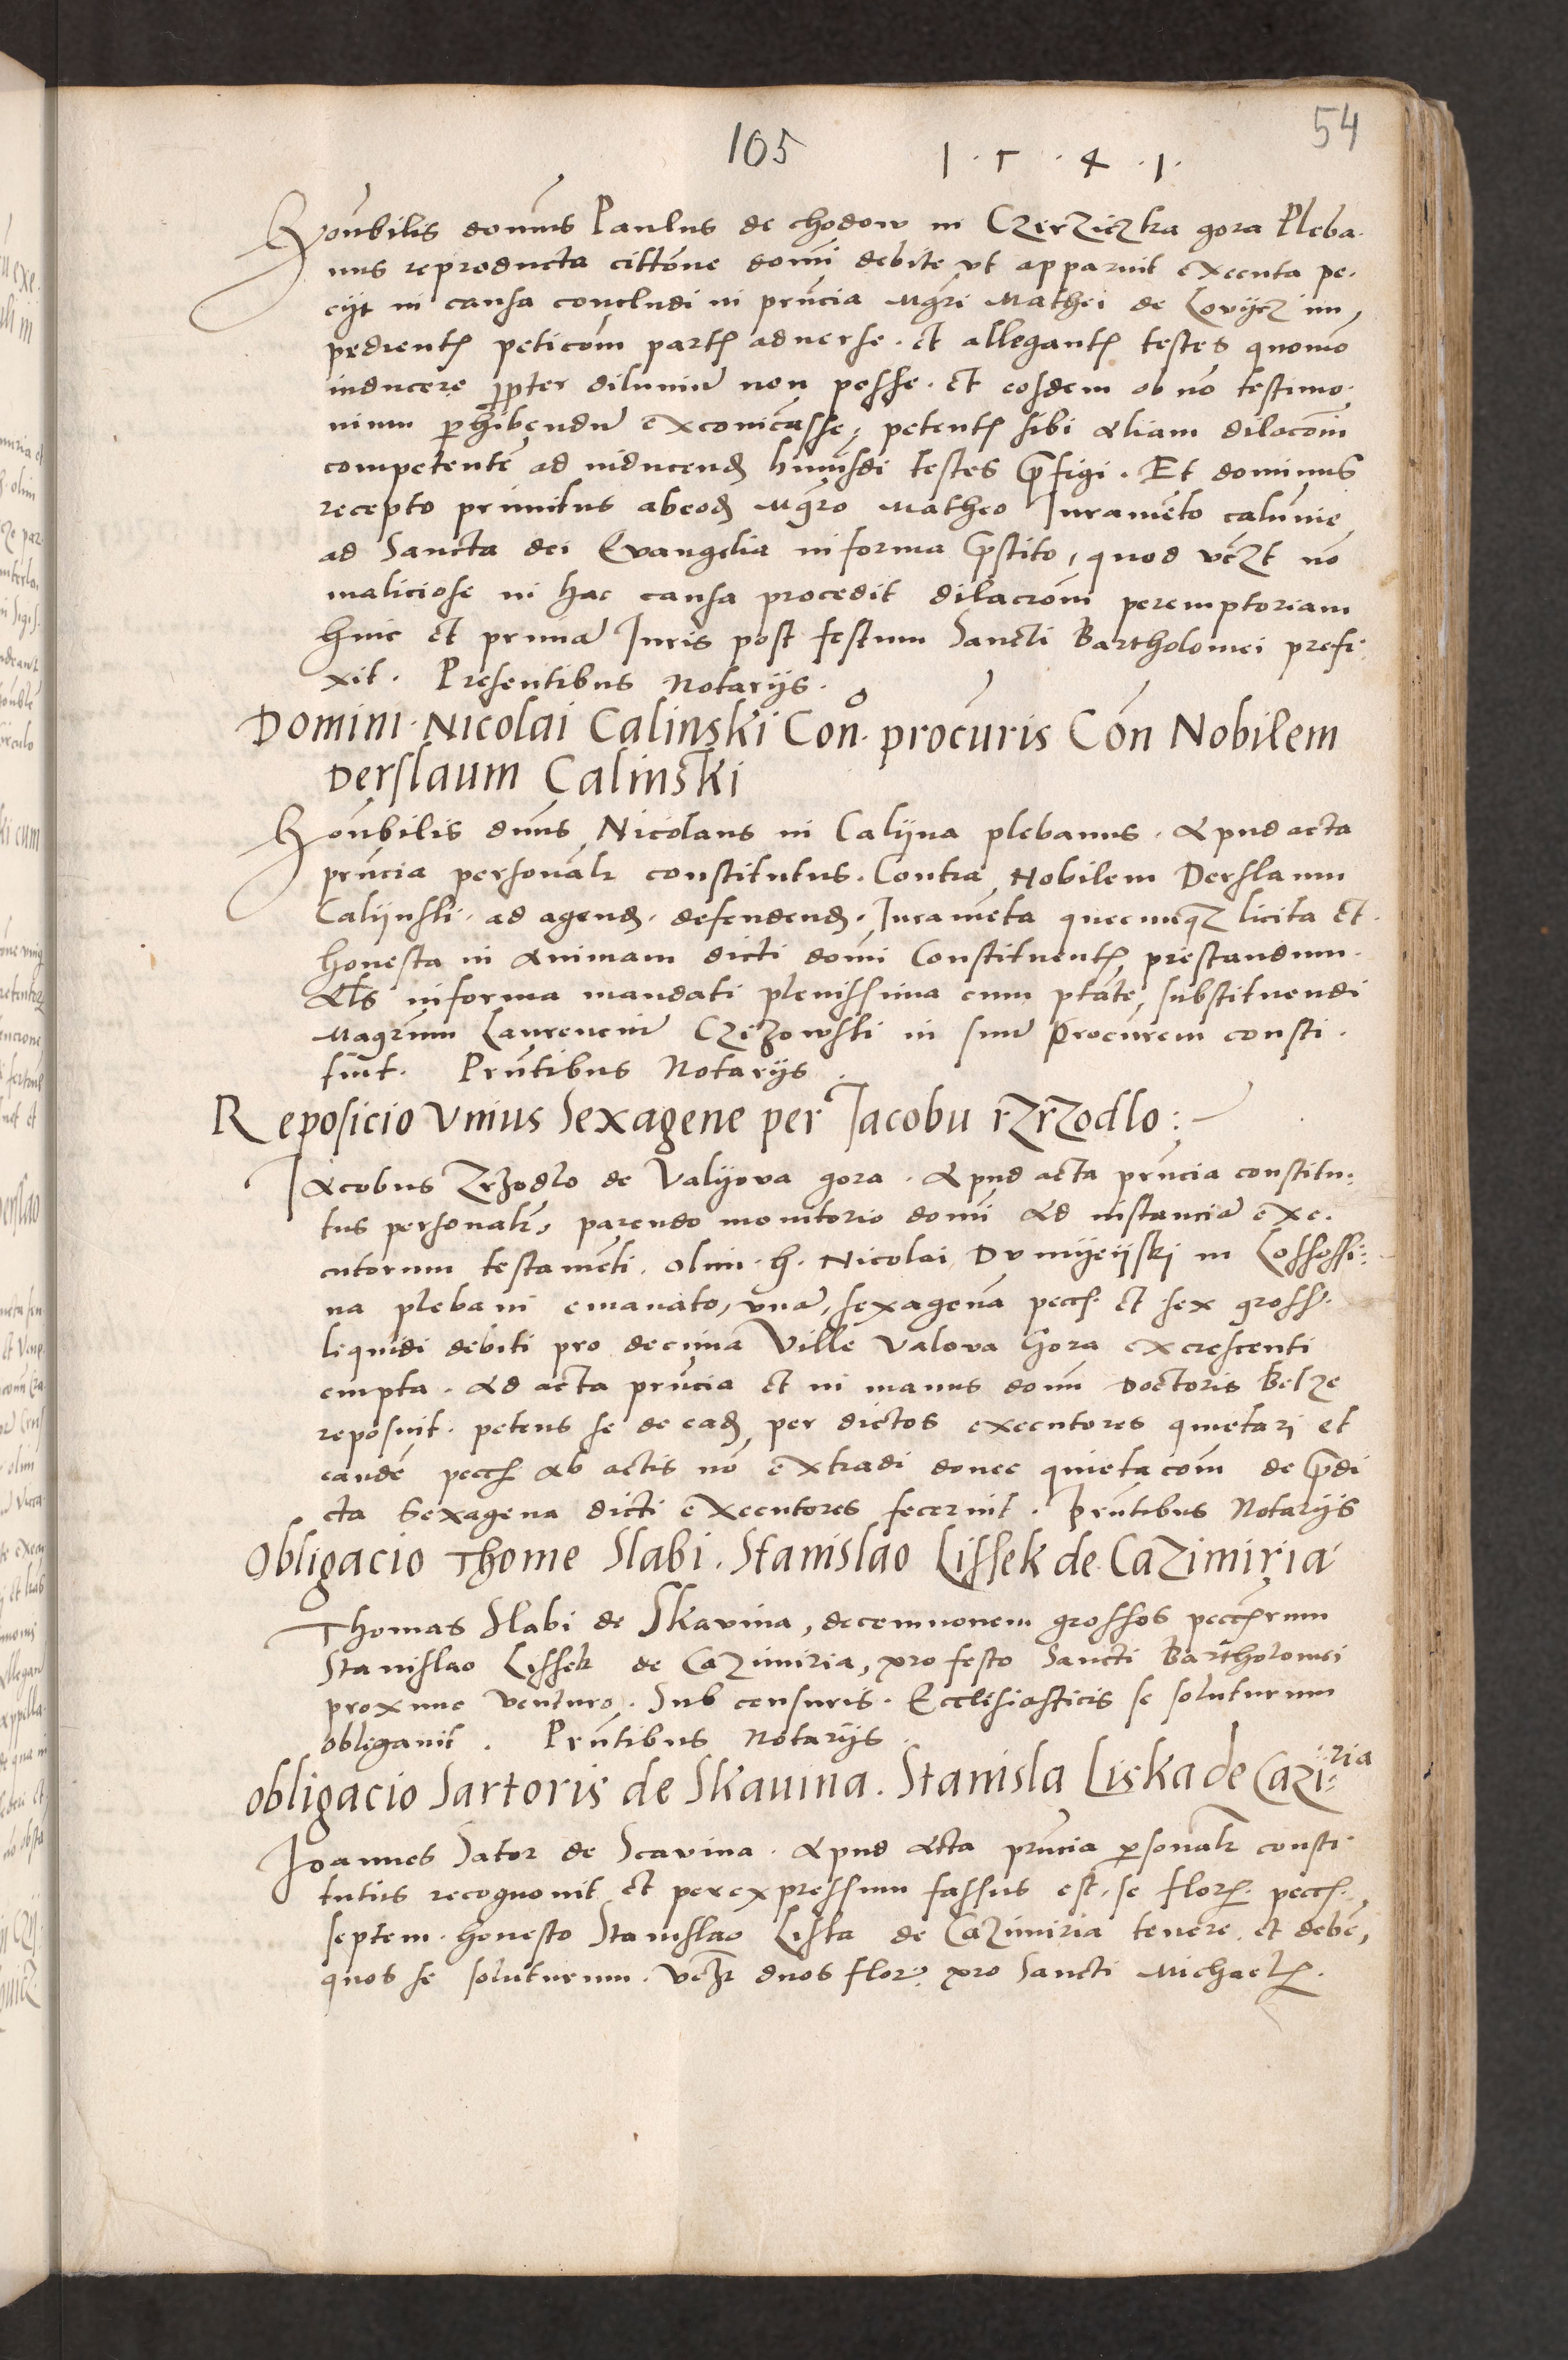 54
105 1·5·4·1·
Honūbilis domūs Paulus de chodow in Czerziczka gora Pleba·
nus reproducta cittōne domī debite vt apparuit executa pe·
cyt in causa concludi in prn̄cia Mgri Mathei de Lovycz im,
pedientꝭ peticōm partꝭ aduerse · et allegantꝭ testes quomō
inducere ꝓpter diluuiū non posse · et eosdem ob nō testimo·
nium perhibendū exconicāsse, petentꝭ sibi aliam dilacōm
competentē ad inducendꝭ huiūsdi testes p̄figi · Et dominus
recepto primitus abeodꝭ Mgro Matheo Iuramēto calūnie
ad Sancta dei Evangelia informa p̄stito, quod vczt nō
maliciose in hac causa procedit dilacionm peremptoriam
hinc et primā Iuris post festum Sancti Bartholomei prefi·
xit · Presentibus Notarijs ·
Domini · Nicolai Calinski Con̄o · procūris Cōn Nobilem
Derslaum Calinski
Honūbilis dnūs Nicolaus in Calijna plebanus · Apud acta
prn̄cia personalr constitutus · Contra Nobilem Derslaum
Calijnski · ad agendꝭ · defendendꝭ · Iuramēta quecumqꝫ licita et ·
honesta in Animam dicti domī Constituentꝭ prestandum ·
Als informa mandati plenissima cum ptāte, substituendi
Magrum Laurenciū Czizowski in suū Procūrem consti ·
tuit · Prn̄tibus Notarijs ·
Reposicio Vnius Sexagene per Iacobu rzrzodlo :
Iacobus Zrzodlo de Valijova gora · Apud acta prn̄cia constitu:
tus personalr, parendo monitorio domī Ad instanciā exe·
cutorum testamēti · olim · h · Nicolai Dvmijeijski in Lossossi:
na plebani emanato, vnā, sexagenā pecc · et sex gross ·
liquidi debiti pro decima Ville Valova Gora excrescenti
empta · Ad acta prn̄cia et in manus domī Doctoris Belze
reposuit · petens se de eadꝭ per dictos executores quietari et
eandē pecc ab actis nō extradi donec quietacōm de p̄di
cta Sexagena dicti executores fecerint · Prn̄tibus Notarijs
Obligacio Thome Slabi · Stanislao Lissek de Cazimiria
Thomas Slabi de Skavina, decemnonem grossos peccrum
Stanislao Lissek de Cazimiria, pro festo Sancti Bartholomei
proxime venturo · Sub censuris · Ecclesiasticis se soluturum
obligauit · Prn̄tibus Notarijs ·
obligacio Sartoris de Skauina · Stanisla Liska de Cazi:ria
Ioannes Sator de Scavina · Apud Acta prn̄cia personalr consti
tutus recognouit et perexpressum fassus est · se flor · pecc ·
septem · honesto Stanislao Liska de Cazimiria tenere · et debē,
quos se soluturum · vczt duos flor · pro Sancti Michaelꝭ ·